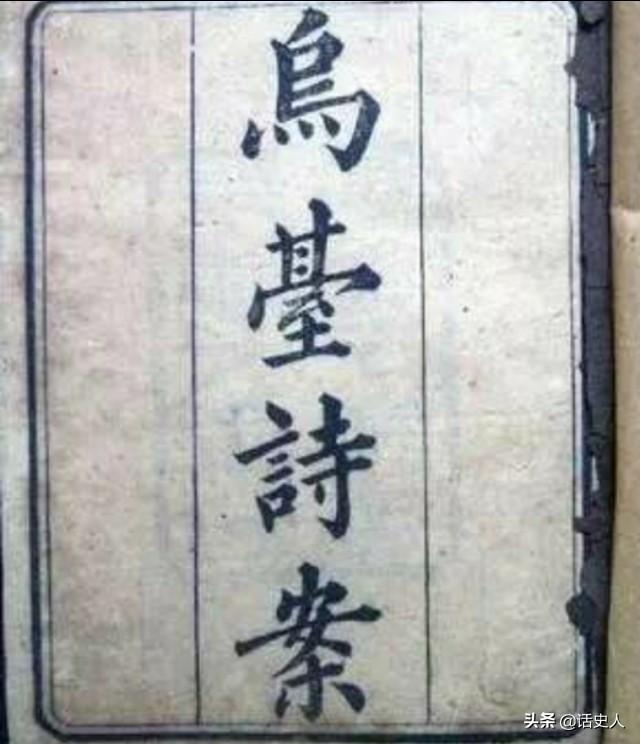 烏臺詩案
头条 @话史人